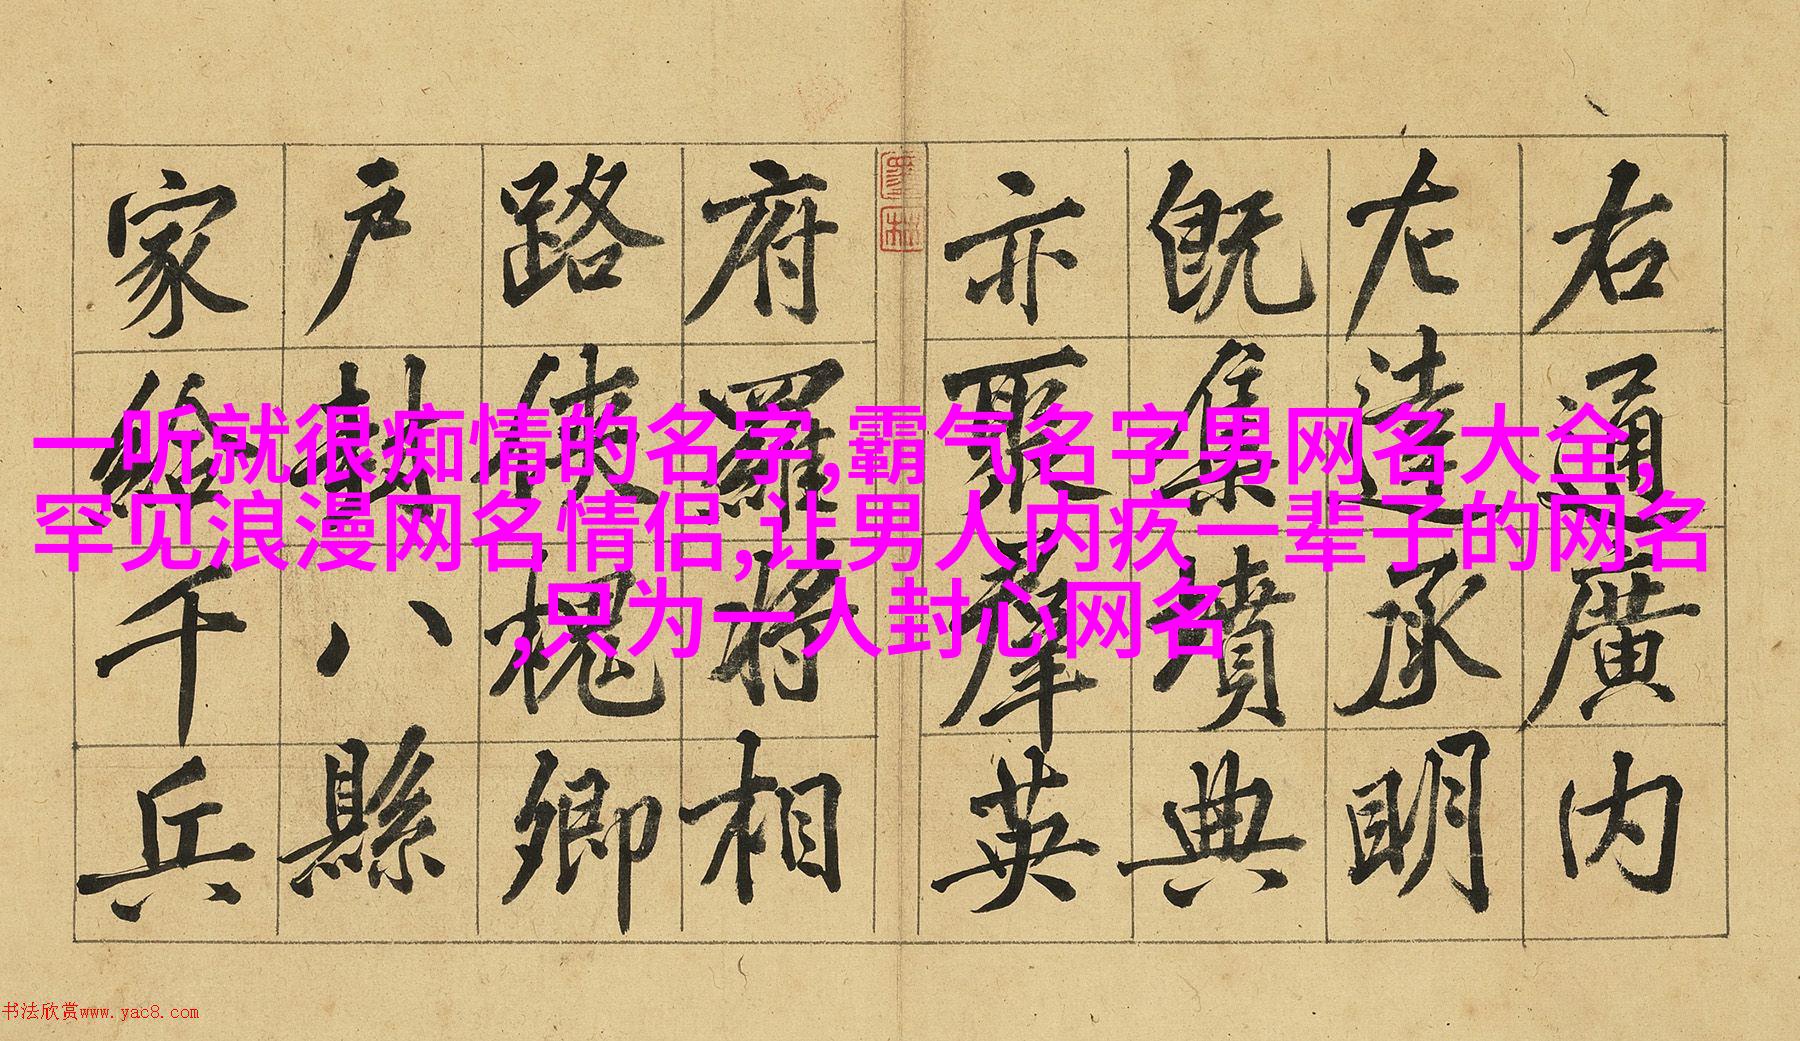 右通廣内
左達承明
既集墳典
亦聚羣英
府羅將相
路俠槐卿
户封八縣
家給千兵
一听就很痴情的名字,霸气名字男网名大全,
罕见浪漫网名情侣,让男人内疚一辈子的网名
,只为一人封心网名
书法欣赏www.yac8.com